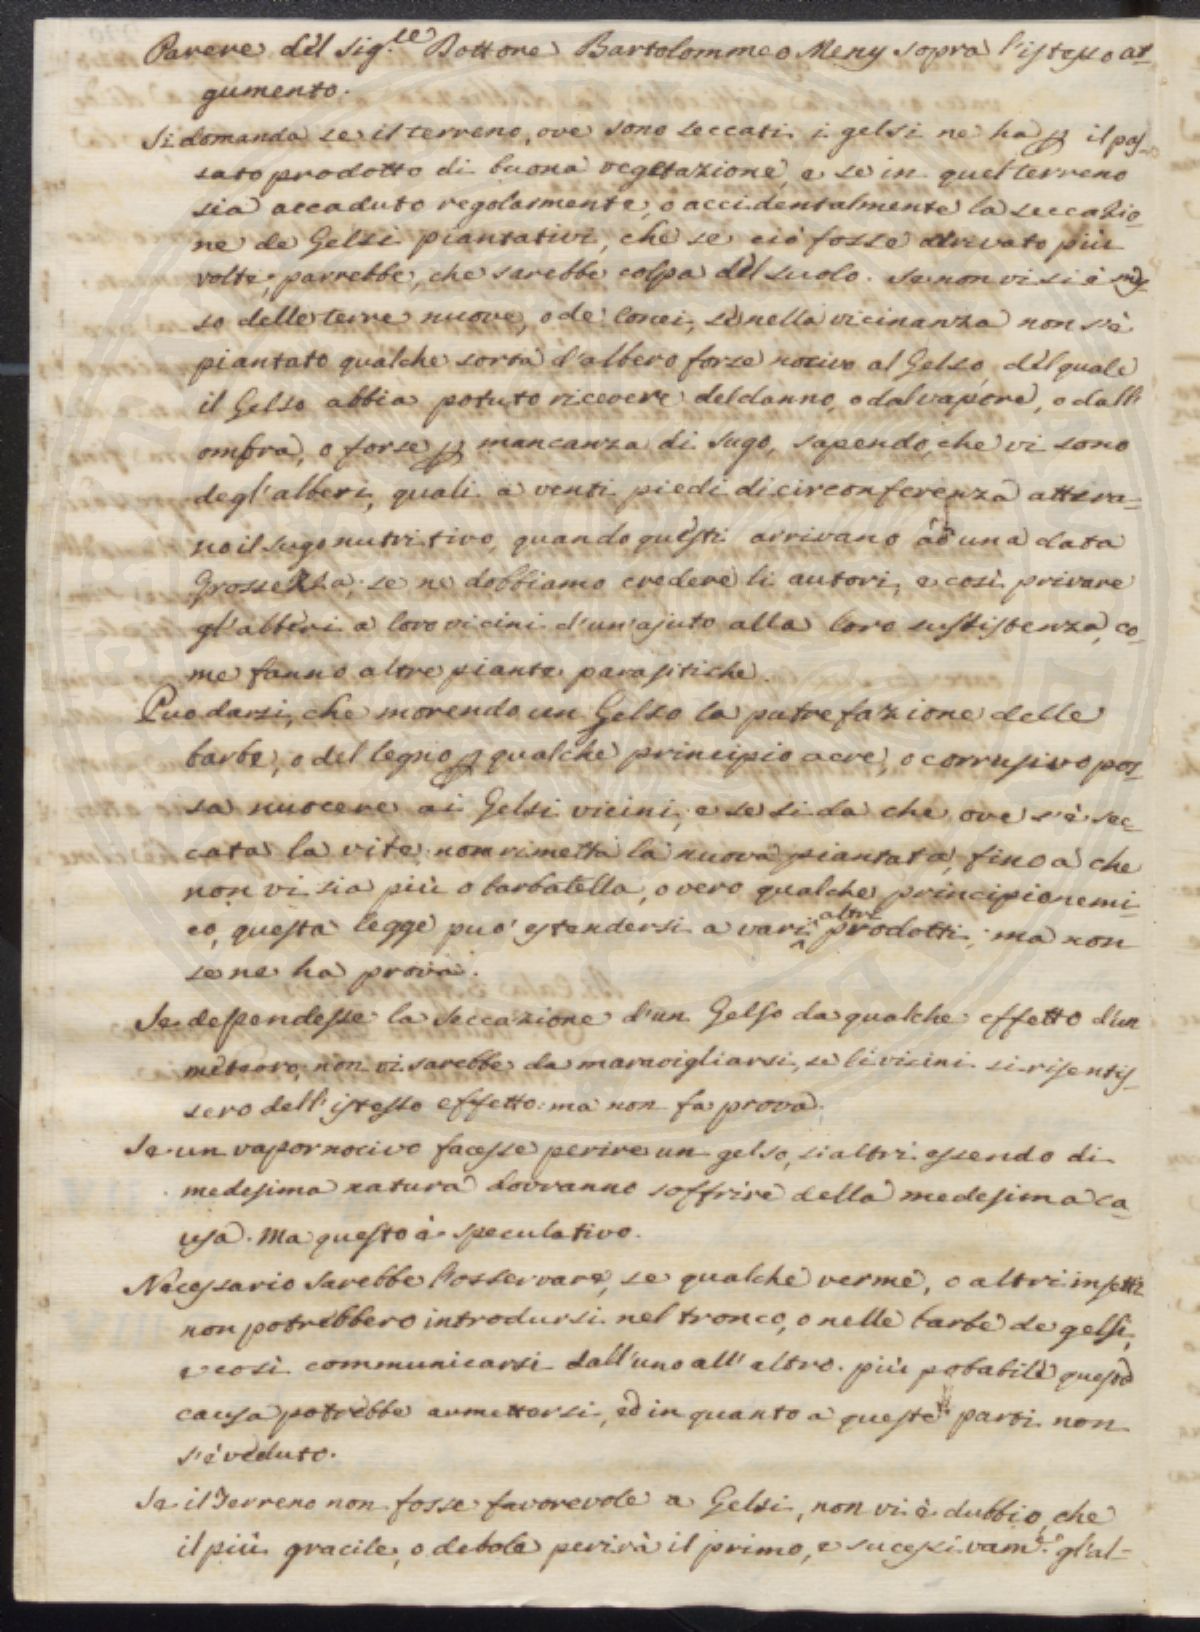 Parere del Sig.re Dottore Bartolommeo Meny sopra l'istesso ar-
gumento.
Si domanda se il terreno, ove sono seccati i gelsi ne ha ꝑ il pas-
sato prodotto di buona vegetazione, e se in quel terreno
sia accaduto regolarmente, o accidentalmente la seccazio-
ne de Gelsi piantativi, che se ciò fosse arrivato più
volte, parrebbe, che sarebbe colpa del suolo. Se non vi si è mes-
so delle terre nuove, o de' Conci, se nella vicinanza non s'è
piantato qualche sorta d'albero forse nocivo al Gelso, del quale
il Gelso abbia potuto ricevere del danno, o dal vapore, o dall'
ombra, o forse ꝑ mancanza di sugo, sapendo, che vi sono
degl'alberi, quali a venti piedi di circonferenza attira-
no il sugo nutritivo, quando questi arrivano ad una data
Grossezza; se ne dobbiamo credere li autori, e così privare
gl'alberi a loro vicini d'un'ajuto alla loro sussistenza, co-
me fanno altre piante parasitiche.
Puo darsi, che morendo un Gelso la putrefazione delle
barbe, o del legno ꝑ qualche principio acre, o corrusivo pos-
sa nuocere ai Gelsi vicini, e se si da che ove s'è sec-
cata la vite non rimetta la nuova piantata, fino a che
non vi sia più o barbatella, overo qualche principio nemi-
co, questa legge può estendersi a vari altri prodotti; ma non
se ne ha prova.
Se dependesse la seccazione d'un Gelso da qualche effetto d'un
meteoro, non vi sarebbe da maravigliarsi, se li vicini si risentis-
sero dell'istesso effetto: ma non fa prova.
Se un vapor nocivo facesse perire un gelso, li altri essendo di
medesima natura dovranno soffrire della medesima ca-
usa. Ma questo è speculativo.
Necessario sarebbe l'osservare, se qualche verme, o altri insetti
non potrebbero introdursi nel tronco, o nelle barbe de gelsi,
e così communicarsi dall'uno all'altro. più pobabile questa
causa potrebbe ammettersi, ed in quanto a queste parti non
s'è veduto.
Se il Terreno non fosse favorevole a Gelsi, non vi è dubbio, che
il più gracile, o debole perirà il primo, e sucessivam.e gl'al-